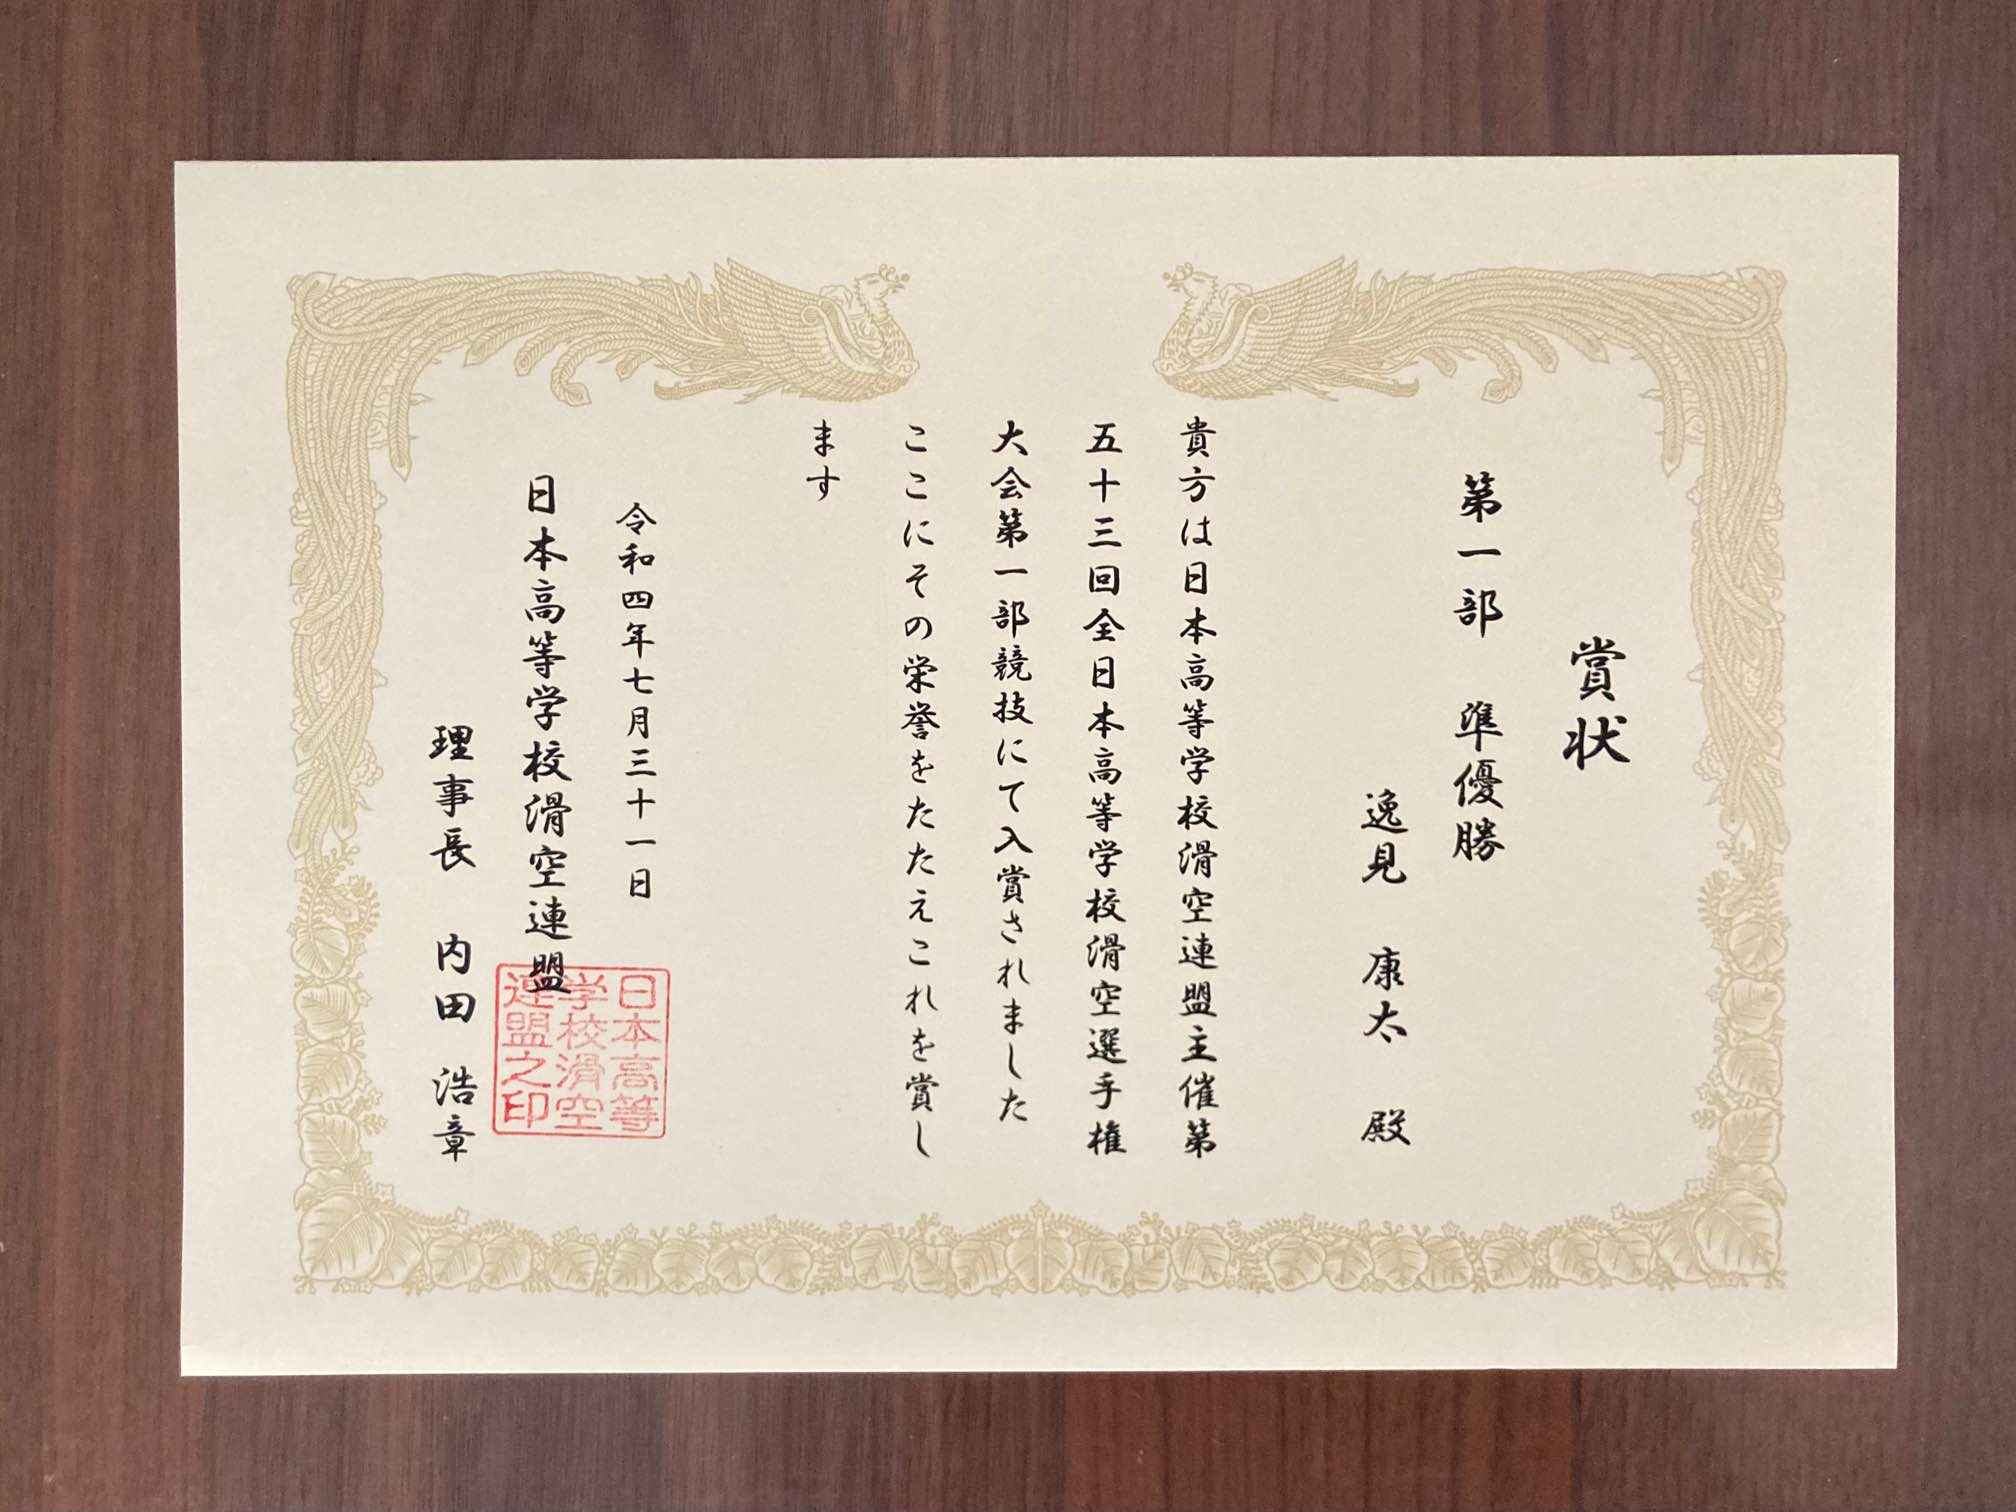 賞状
第一部 準優勝
逸見 康太 殿
貴方は日本高等学校滑空連盟主催第
五十三回全日本高等学校滑空選手権
大会第一部競技にて入賞されました
ここにその栄誉をたたえこれを賞し
ます
令和四年七月三十一日
日本高等学校滑空連盟
理事長 内田 浩章
日本高等
学校滑空
連盟之印